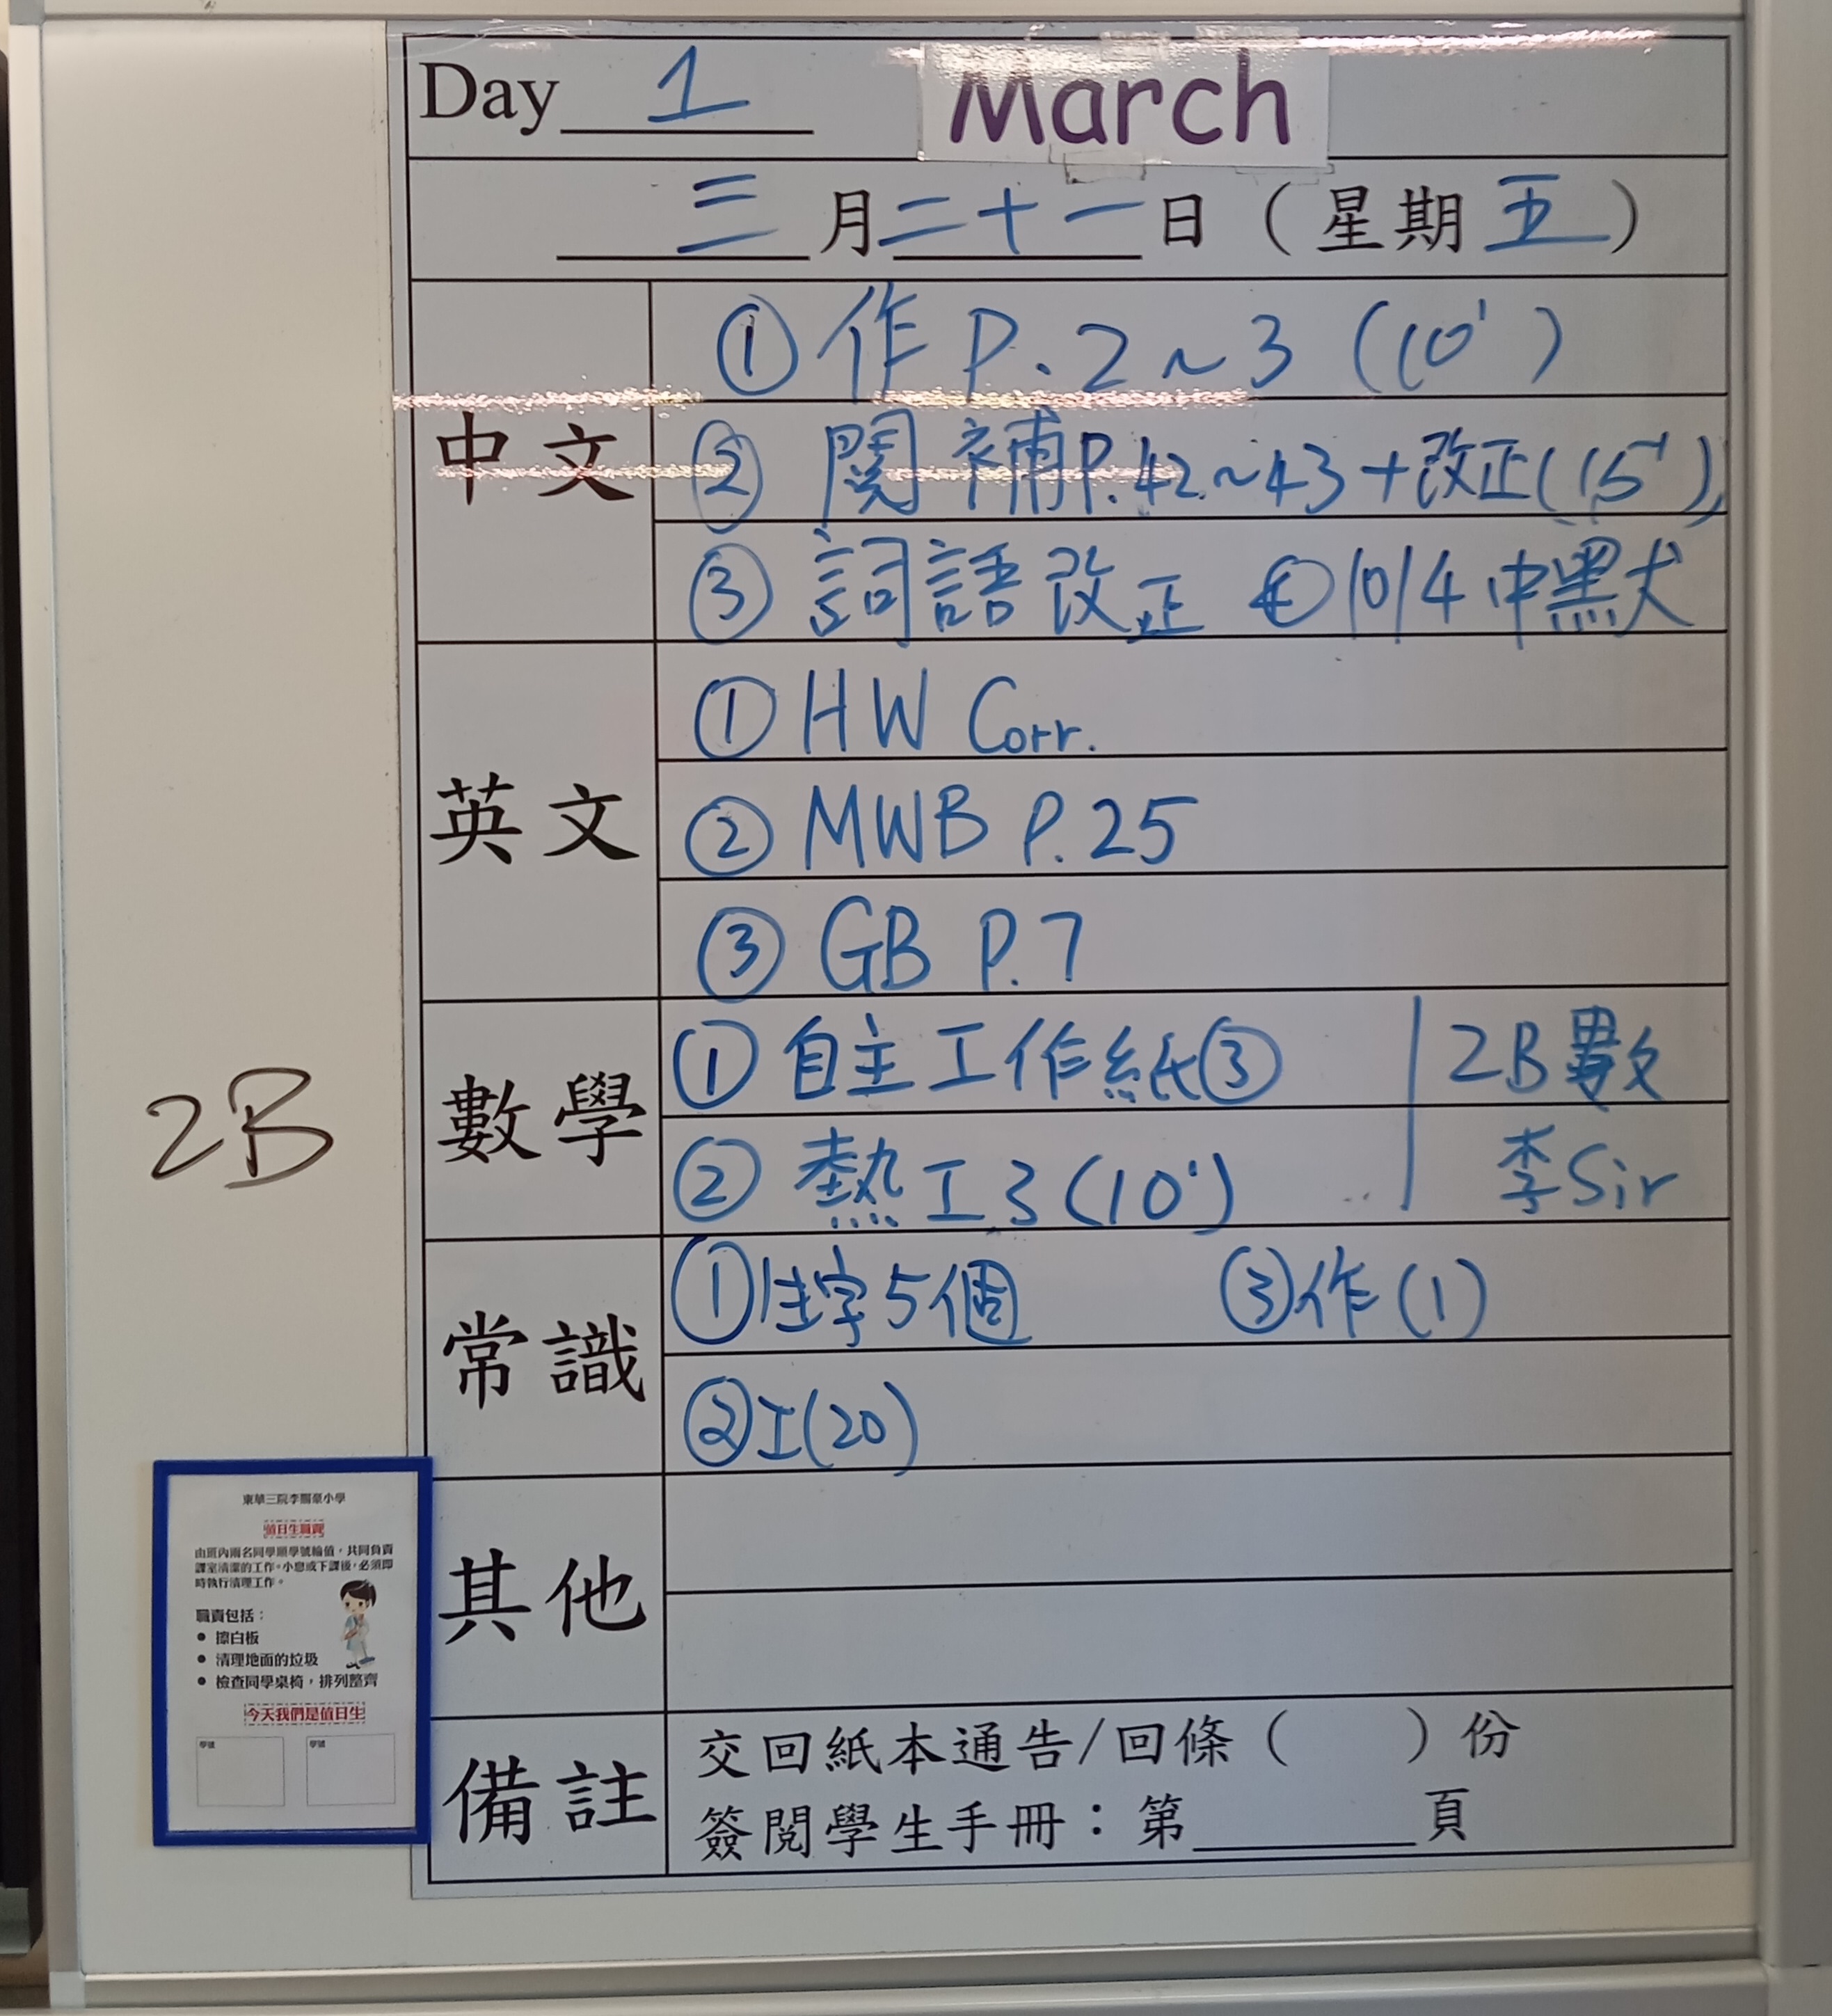 Day 1 March
三月二十一日（星期五）
中文
① 作 P.2~3 (10')
② 閱補P.42~43+改正(15')
③ 詞語改正 ④10/4中默
英文
① HW Corr.
② MWB P.25
③ GB P.7
數學
① 自主工作紙③
② 熱工3(10')
2B數
李Sir
常識
①生字5個 ③作(1)
②工(20)
其他
備註
交回紙本通告/回條（ ）份
簽閱學生手冊：第______頁
2B
東華三院李賜豪小學
值日生職責
由班內兩名同學順學號輪值，共同負責
課室清潔的工作。小息或下課後，必須即
時執行清理工作。
職責包括：
● 擦白板
● 清理地面的垃圾
● 檢查同學桌椅，排列整齊
今天我們是值日生
學號 學號